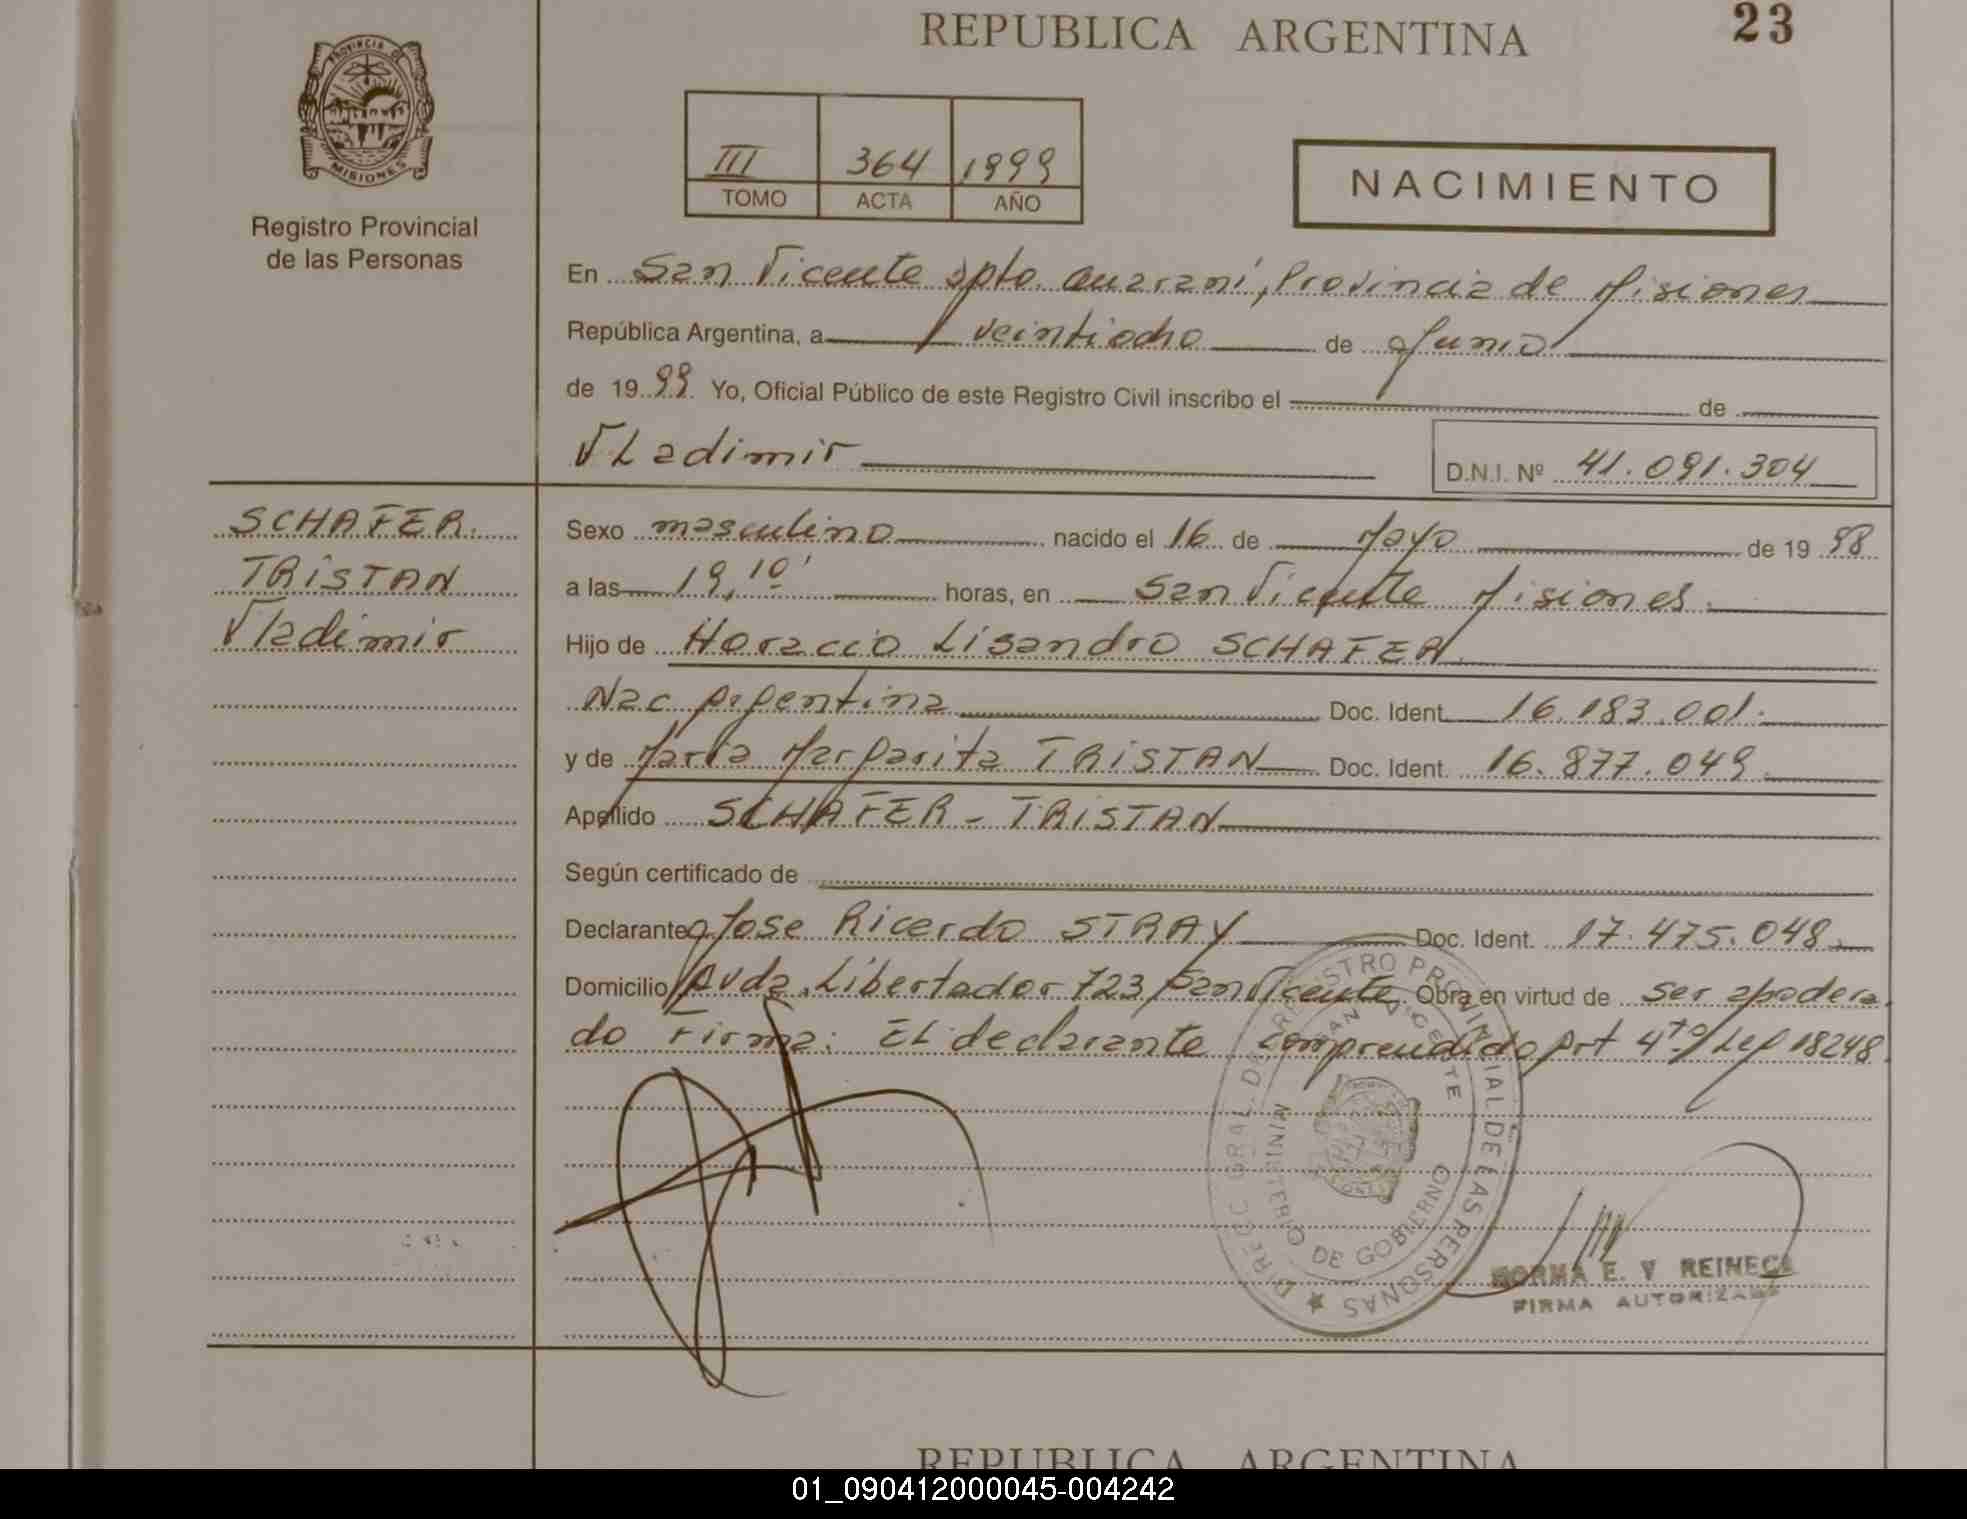 REPUBLICA ARGENTINA
23
PROVINCIA DE
MISIONES
Registro Provincial
de las Personas
III 364 1999
TOMO ACTA AÑO
NACIMIENTO
En San Vicente Dpto. Guaraní, Provincia de Misiones
República Argentina, a veintiocho de Junio
de 1999 Yo, Oficial Público de este Registro Civil inscribo el de
VLadimir
D.N.I. Nº 41.091.304
SCHAFER
TRISTAN
Vladimir
Sexo masculino nacido el 16 de Mayo de 1998
a las 19,10' horas, en San Vicente Misiones
Hijo de Horacio Lisandro SCHAFER
Nac Argentina Doc. Ident. 16.183.001.
y de María Margarita TRISTAN Doc. Ident. 16.877.049
Apellido SCHAFER - TRISTAN
Según certificado de
Declarante Jose Ricardo STRAY Doc. Ident. 17.475.048
Domicilio Avda. Libertador 723 San Vicente Obra en virtud de ser apodera
do Firma: EL declarante comprendido Art 4to Ley 18248
DIREC GRAL. DE REGISTRO PROVINCIAL DE LAS PERSONAS
SAN VICENTE
MINISTERIO DE GOBIERNO
NORMA E. V REINECK
FIRMA AUTORIZADA
REPUBLICA ARGENTINA
01_090412000045-004242